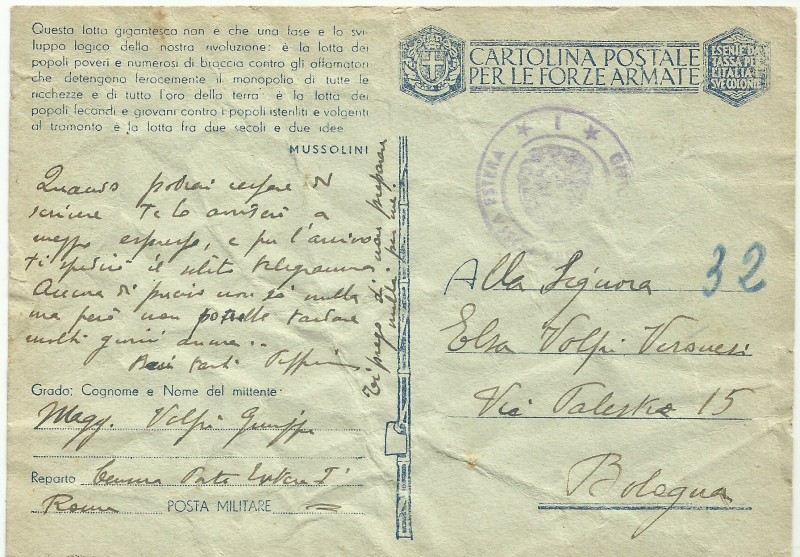 Questa lotta gigantesca non è che una fase e lo svi-
luppo logico della nostra rivoluzione: è la lotta dei
popoli poveri e numerosi di braccia contro gli affamatori
che detengono ferocemente il monopolio di tutte le
ricchezze e di tutto l'oro della terra: è la lotta dei
popoli fecondi e giovani contro i popoli isteriliti e volgenti
al tramonto è la lotta fra due secoli e due idee
MUSSOLINI
Quando potrai cessare di
scrivere te lo avviserò a
mezzo espresso, e per l'arrivo
ti spedirò il solito telegramma.
Ancora di preciso non so nulla
ma però non potrebbe tardare
molti giorni ancora..
Baci tanti
Ti prego di non preparare
nulla per me
Grado, Cognome e Nome del mittente:
Magg. Volpi Giuseppe
Reparto
Posta Estera I
Roma POSTA MILITARE
CARTOLINA POSTALE
PER LE FORZE ARMATE
ESENTE DA
TASSA PER
L'ITALIA
SUE COLONIE
★ I ★
ESTERA
32
Alla Signora
Elsa Volpi Veronesi
Via 15
Bologna